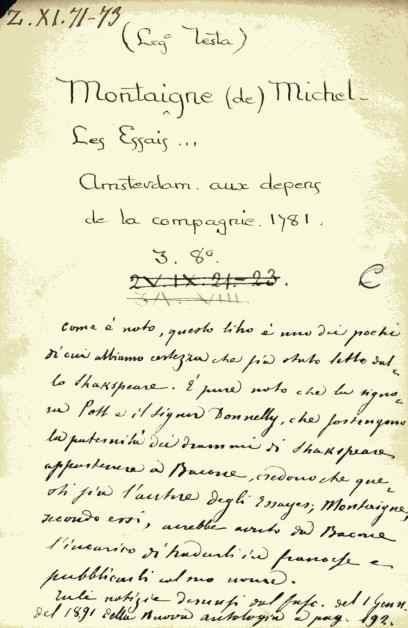 Z. XI. 71-73
(Leg. Testa)
Montaigne (de) Michel-
Les Essais ...
Amsterdam. aux depens
de la compagnie. 1781.
3. 8º.
2V. IX. 21-23.
3A. VIII
C
Come è noto, questo libro è uno dei pochi
di cui abbiamo certezza che sia stato letto dal-
lo Shakspeare. È pure noto che la signo-
ra Pott e il signor Donnelly, che sostengono
la paternità dei drammi di Shakspeare
appartenere a Bacone, credono che que-
sti sia l'autore degli Essayes; Montaigne,
secondo essi, avrebbe avuto da Bacone
l'incarico di tradurli in francese e
pubblicarli col suo nome.
Tale notizie desunsi dal fasc. del 1 Genn.
del 1891 della Nuova antologia a pag. 192.